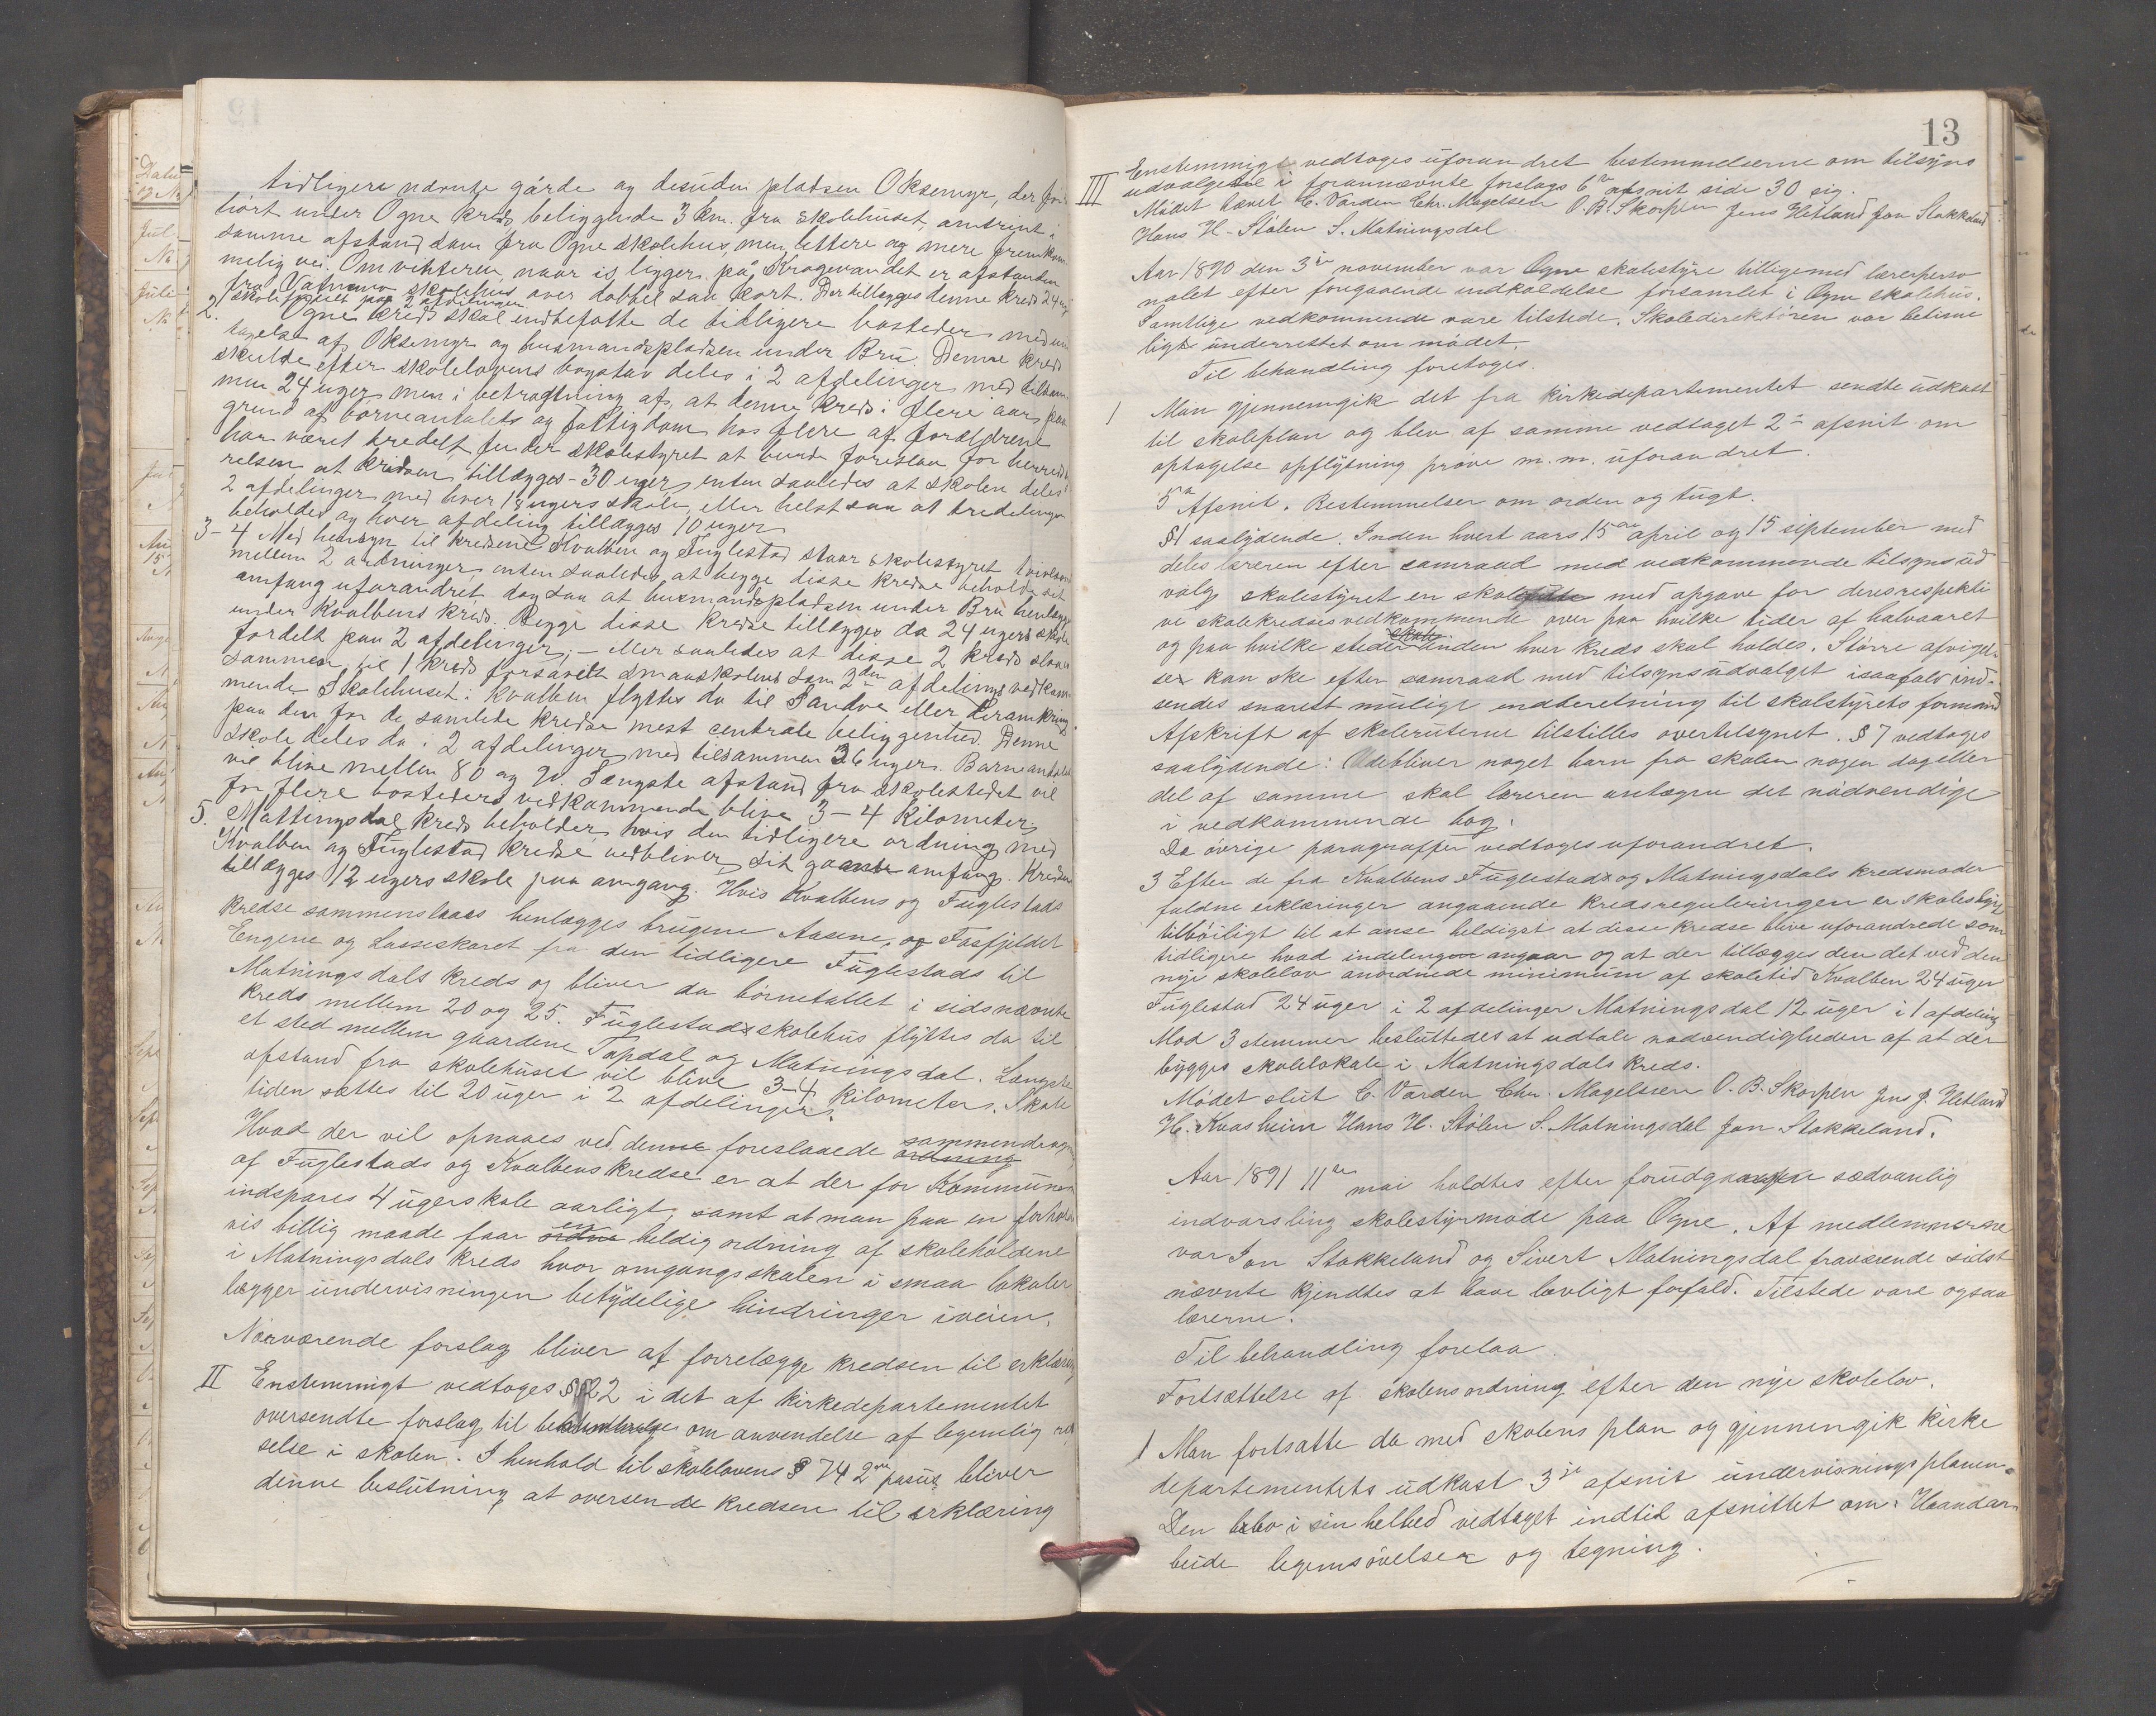 tidligere nævnte gårde og desuden pladsen Oksemyr, der før
hørt under Ogne kreds beliggende 3 km. fra skolehuset, omtrint i
samme afstand som fra Ogne skolehus, men lettere og mere fremkom
melig vei. Om vinteren naar is ligger på Kragevandet er afstanden
fra skolehus over dobbel saa kort. Der tillægges denne kreds 24 ug
skole fordelt paa 2 afdelinger
2. Ogne kreds skal indbefatte de tidligere bosteder med und
tagelse af Oksemyr og husmandspladsen under Bru. Denne kreds
skulde efter skolelovens bogstav deles i 2 afdelinger med tilsam
men 24 uger men i betragtning af, at denne kreds i flere aar paa
grund af børneantalets og fattigdom hos flere af forældrene
har været tredelt finder skolestyret at burde foreslaa for herreds
relsen at kredsen tillægges 30 uger enten saaledes at skolen deles i
2 afdelinger med hver 15 ugers skole, eller helst saa at tredelingen
beholdes og hver afdeling tillægges 10 uger
3-4 Med hensyn til kredsene Kvalben og Fuglestad staar skolestyret
mellem 2 ordninger, enten saaledes at begge disse kredse beholde sit
omfang uforandret dog saa at husmandspladsen under Bru henlægges
under Kvalbens kreds. Begge disse kredse tillægges da 24 ugers skole
fordelt paa 2 afdelinger; – eller saaledes at disse 2 kreds slaaes
sammen til 1 kreds forsavidt smaaskolens som 2den afdelings vedkom
mende Skolehuset i Kvalben flyttes da til Sandve eller deromkring
paa den for de samlede kredse mest centrale beliggenhed. Denne
skole deles da i 2 afdelinger med tilsammen 36 uger. Barneantalet
vil blive mellem 80 og 90. Længste afstand fra skolestedet vil
for flere bosteders vedkommende blive 3–4 Kilometer
5. Matningsdal kreds beholder, hvis den tidligere ordning med
Kvalben og Fuglestad kredse vedbliver, sit gamle omfang. Kredsen
tillægges 12 ugers skole paa omgang. Hvis Kvalbens og Fuglestads
kredse sammenslaaes henlægges brugene Aasene, og Fosfjeldet
Engene og Lasseskaret fra den tidligere Fuglestads til
Matningsdals kreds og bliver da børnetallet i sidsnævnte
kreds mellem 20 og 25. Fuglestads skolehus flyttes da til
et sted mellem gaardene Tapdal og Matningsdal. Længste
afstand fra skolehuset vil blive 3–4 kilometer. Skole
tiden sættes til 20 uger i 2 afdelinger.
Hvad der vil opnaaes ved denne foreslaaede ordning sammendragning
af Fuglestads og Kvalbens kredse er at der for Kommunen
indspares 4 ugers skole aarligt, samt at man paa en forholds
vis billig maade faar en heldig ordning af skoleholdene
i Matningsdals kreds hvor omgangsskolen i smaa lokaler
lægger undervisningen betydelige hindringer iveien.
Nærværende forslag bliver at forrelægge kredsen til erklæring
II Enstemmigt vedtoges § 22 i det af kirkedepartementet
oversendte forslag til om anvendelse af legemlig ref
selse i skolen. I henhold til skolelovens § 74 2den pasus bliver
denne beslutning at oversende kredsen til erklæring
13
III Enstemmigt vedtoges uforandret bestemmelserne om tilsyns
udvalgene i forannævnte forslags 6te afsnit side 30 sig.
Mødet hævet C. Varden Chr. Magelssen O. B. Skorpen Jens Hetland Jon Stokkeland
Hans H. Stølen S. Matningsdal
Aar 1890 den 3die november var Ogne skolestyre tilligemed lærerperso
nalet efter foregaaende indkaldelse forsamlet i Ogne skolehus.
Samtlige vedkommende vare tilstede. Skoledirektøren var betime
ligt underrettet om mødet.
Til behandling foretoges.
1 Man gjennemgik det fra kirkedepartementet sendte udkast
til skoleplan og blev af samme vedtaget 2- afsnit om
optagelse opflytning prøve m. m. uforandret.
5te Afsnit. Bestemmelser om orden og tugt.
§1 saalydende. Inden hvert aars 15de april og 15 september med
deles læreren efter samraad med vedkommende tilsynsud
valg skolestyret en med opgave for deres respekti
ve skolekredsers vedkommende over paa hvilke tider af halvaaret
og paa hvilke steder skole inden hver kreds skal holdes. Større afvigel
ser kan ske efter samraad med tilsynsudvalget isaafald ind-
sendes snarest muligt indberetning til skolstyrets formand
Afskrift af skoleruterne tilstilles overtilsynet. § 7 vedtoges
saalydende: Udebliver noget barn fra skolen nogen dag eller
del af samme skal læreren antegne det nødvendige
i vedkommende bog.
De øvrige paragraffer vedtoges uforandret.
3 Efter de fra Kvalbens Fuglestads og Matningsdals kredsmøder
faldne erklæringer angaaende kredsreguleringen er skolestyret
tilbøiligt til at anse heldigst at disse kredse blive uforandrede som
tidligere hvad indelingen angaar og at der tillægges den det ved den
nye skolelov anordnede minimum af skoletid Kvalben 24 uger
Fuglestad 24 uger i 2 afdelinger Matningsdal 12 uger i 1 afdeling
Mod 3 stemmer besluttedes at udtale nødvendigheden af at der
bygges skolelokale i Matningsdals kreds.
Mødet slut C. Varden Chr. Magelssen O. B. Skorpen Jens J. Hetland
H. Kvasheim Hans H. Stølen S. Matningsdal Jon Stokkeland.
Aar 1891 11te mai holdtes efter forudgaaende sædvanlig
indvarsling skolestyrmøde paa Ogne. Af medlemmerne
var Jon Stokkeland og Sivert Matningsdal fraværende sidst
nævnte kjendtes at have lovligt forfald. Tilstede vare ogsaa
lærerne.
Til behandling forelaa.
Fortsættelse af skolens ordning efter den nye skolelov.
1 Man fortsatte da med skolens plan og gjennemgik kirke
departementets udkast 3die afsnit undervisningsplanen.
Den blev i sin helhed vedtaget indtil afsnittet om Haandar
beide legemsøvelser og tegning.